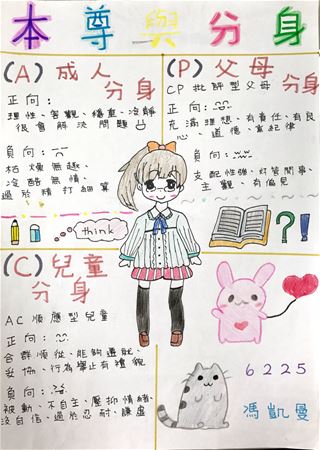 本尊與分身
(A)成人
分身
正向:
理性、客觀、穩重、冷靜
很會解決問題
負向:
枯燥無趣、
冷酷無情、
過於精打細算
think
(P)父母
分身
CP批評型父母
正向:
充滿理想、有責任、有良
心、道德、有紀律
負向:
支配性強、好質問事、
主觀、有偏見
?!
(C)兒童
分身
AC順應型兒童
正向:
合群順從、能夠遷就、
妥協、行為舉止有禮貌
負向:
被動、不自主、壓抑情緒、
沒自信、過於忍耐、謙虛
6225
馮凱曼